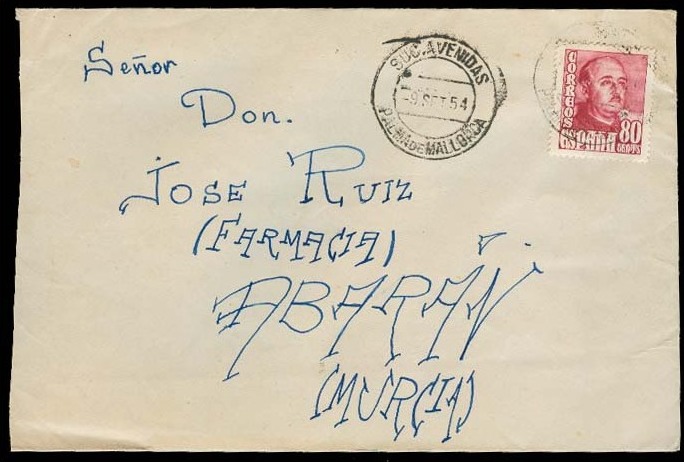 Señor
Don.
JOSE RUIZ
(FARMACIA)
ABARÁN
(MURCIA)
SUC. AVENIDAS
-9 SET. 54
PALMA DE MALLORCA
CORREOS
ESPAÑA
80
CENTS